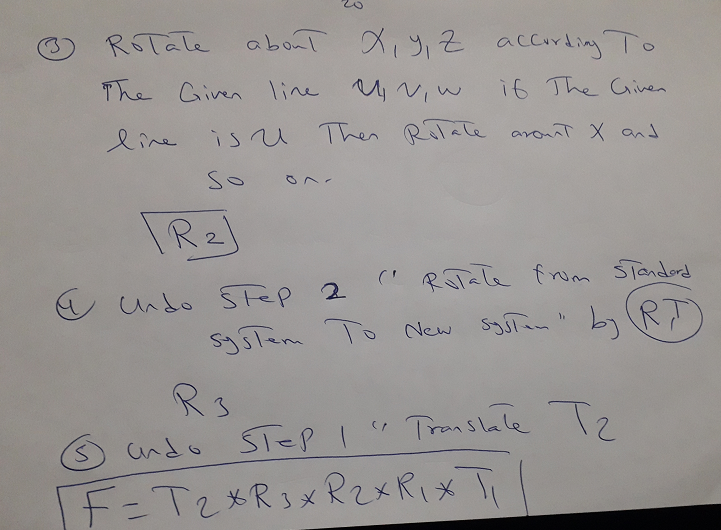 20
③ Rotate about X, y, Z according To
The Given line U, V, W if The Given
line is U Then Rotate arount X and
so on.
R2
④ undo STEP 2 " Rotate from standard
system To New system" by RT
R3
⑤ undo STEP 1 " Translate T2
F = T2 * R3 * R2 * R1 * T1